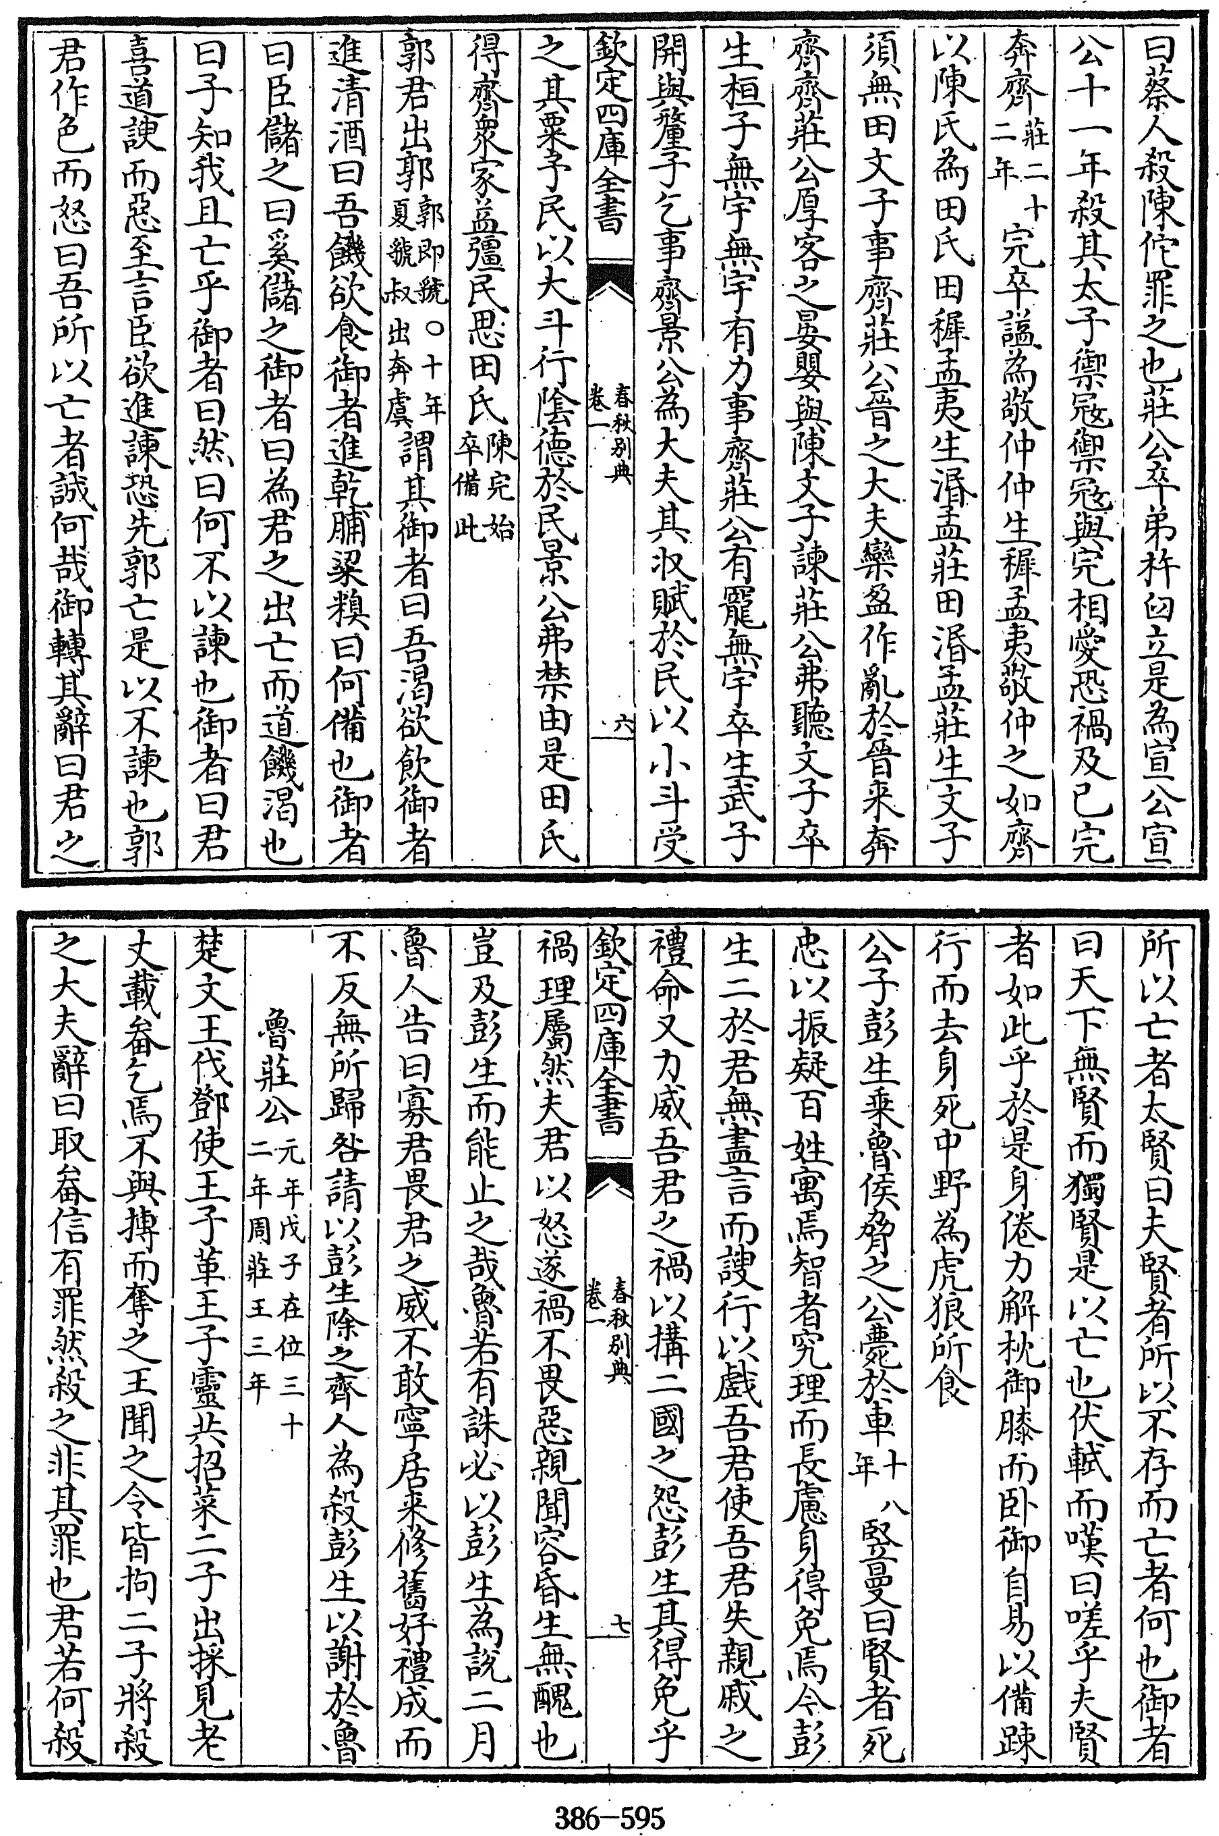 曰蔡人殺陳佗罪之也莊公卒弟杵臼立是為宣公宣
公十一年殺其太子禦寇禦寇與完相愛恐禍及己完
奔齊莊二十二年完卒諡為敬仲仲生穉孟夷敬仲之如齊
以陳氏為田氏田穉孟夷生湣孟莊田湣孟莊生文子
須無田文子事齊莊公晉之大夫欒盈作亂於晉来奔
齊齊莊公厚客之晏嬰與陳文子諫莊公弗聽文子卒
生桓子無宇無宇有力事齊莊公有寵無宇卒生武子
開與釐子乞事齊景公為大夫其收賦於民以小斗受
欽定四庫全書
春秋別典
卷一
六
之其粟予民以大斗行陰德於民景公弗禁由是田氏
得齊衆家益彊民思田氏陳完始卒備此
郭君出郭郭即虢夏虢叔○十年出奔虞謂其御者曰吾渴欲飲御者
進清酒曰吾饑欲食御者進乾脯粱糗曰何備也御者
曰臣儲之曰奚儲之御者曰為君之出亡而道饑渴也
曰子知我且亡乎御者曰然曰何不以諫也御者曰君
喜道諛而惡至言臣欲進諫恐先郭亡是以不諫也郭
君作色而怒曰吾所以亡者誠何哉御轉其辭曰君之
所以亡者太賢曰夫賢者所以不存而亡者何也御者
曰天下無賢而獨賢是以亡也伏軾而嘆曰嗟乎夫賢
者如此乎於是身倦力解枕御膝而卧御自易以備踈
行而去身死中野為虎狼所食
公子彭生乘魯侯脅之公薨於車十八年豎曼曰賢者死
忠以振疑百姓寓焉智者究理而長慮身得免焉今彭
生二於君無盡言而諛行以戲吾君使吾君失親戚之
禮命又力威吾君之禍以搆二國之怨彭生其得免乎
欽定四庫全書
春秋別典
卷一
七
禍理屬然夫君以怒遂禍不畏惡親聞容昏生無醜也
豈及彭生而能止之哉魯若有誅必以彭生為說二月
魯人告曰寡君畏君之威不敢寧居来修舊好禮成而
不反無所歸咎請以彭生除之齊人為殺彭生以謝於魯
魯莊公元年戊子在位三十二年周莊王三年
楚文王伐鄧使王子革王子靈共招菜二子出採見老
丈載畚乞焉不與搏而奪之王聞之令皆拘二子將殺
之大夫辭曰取畚信有罪然殺之非其罪也君若何殺
386-595